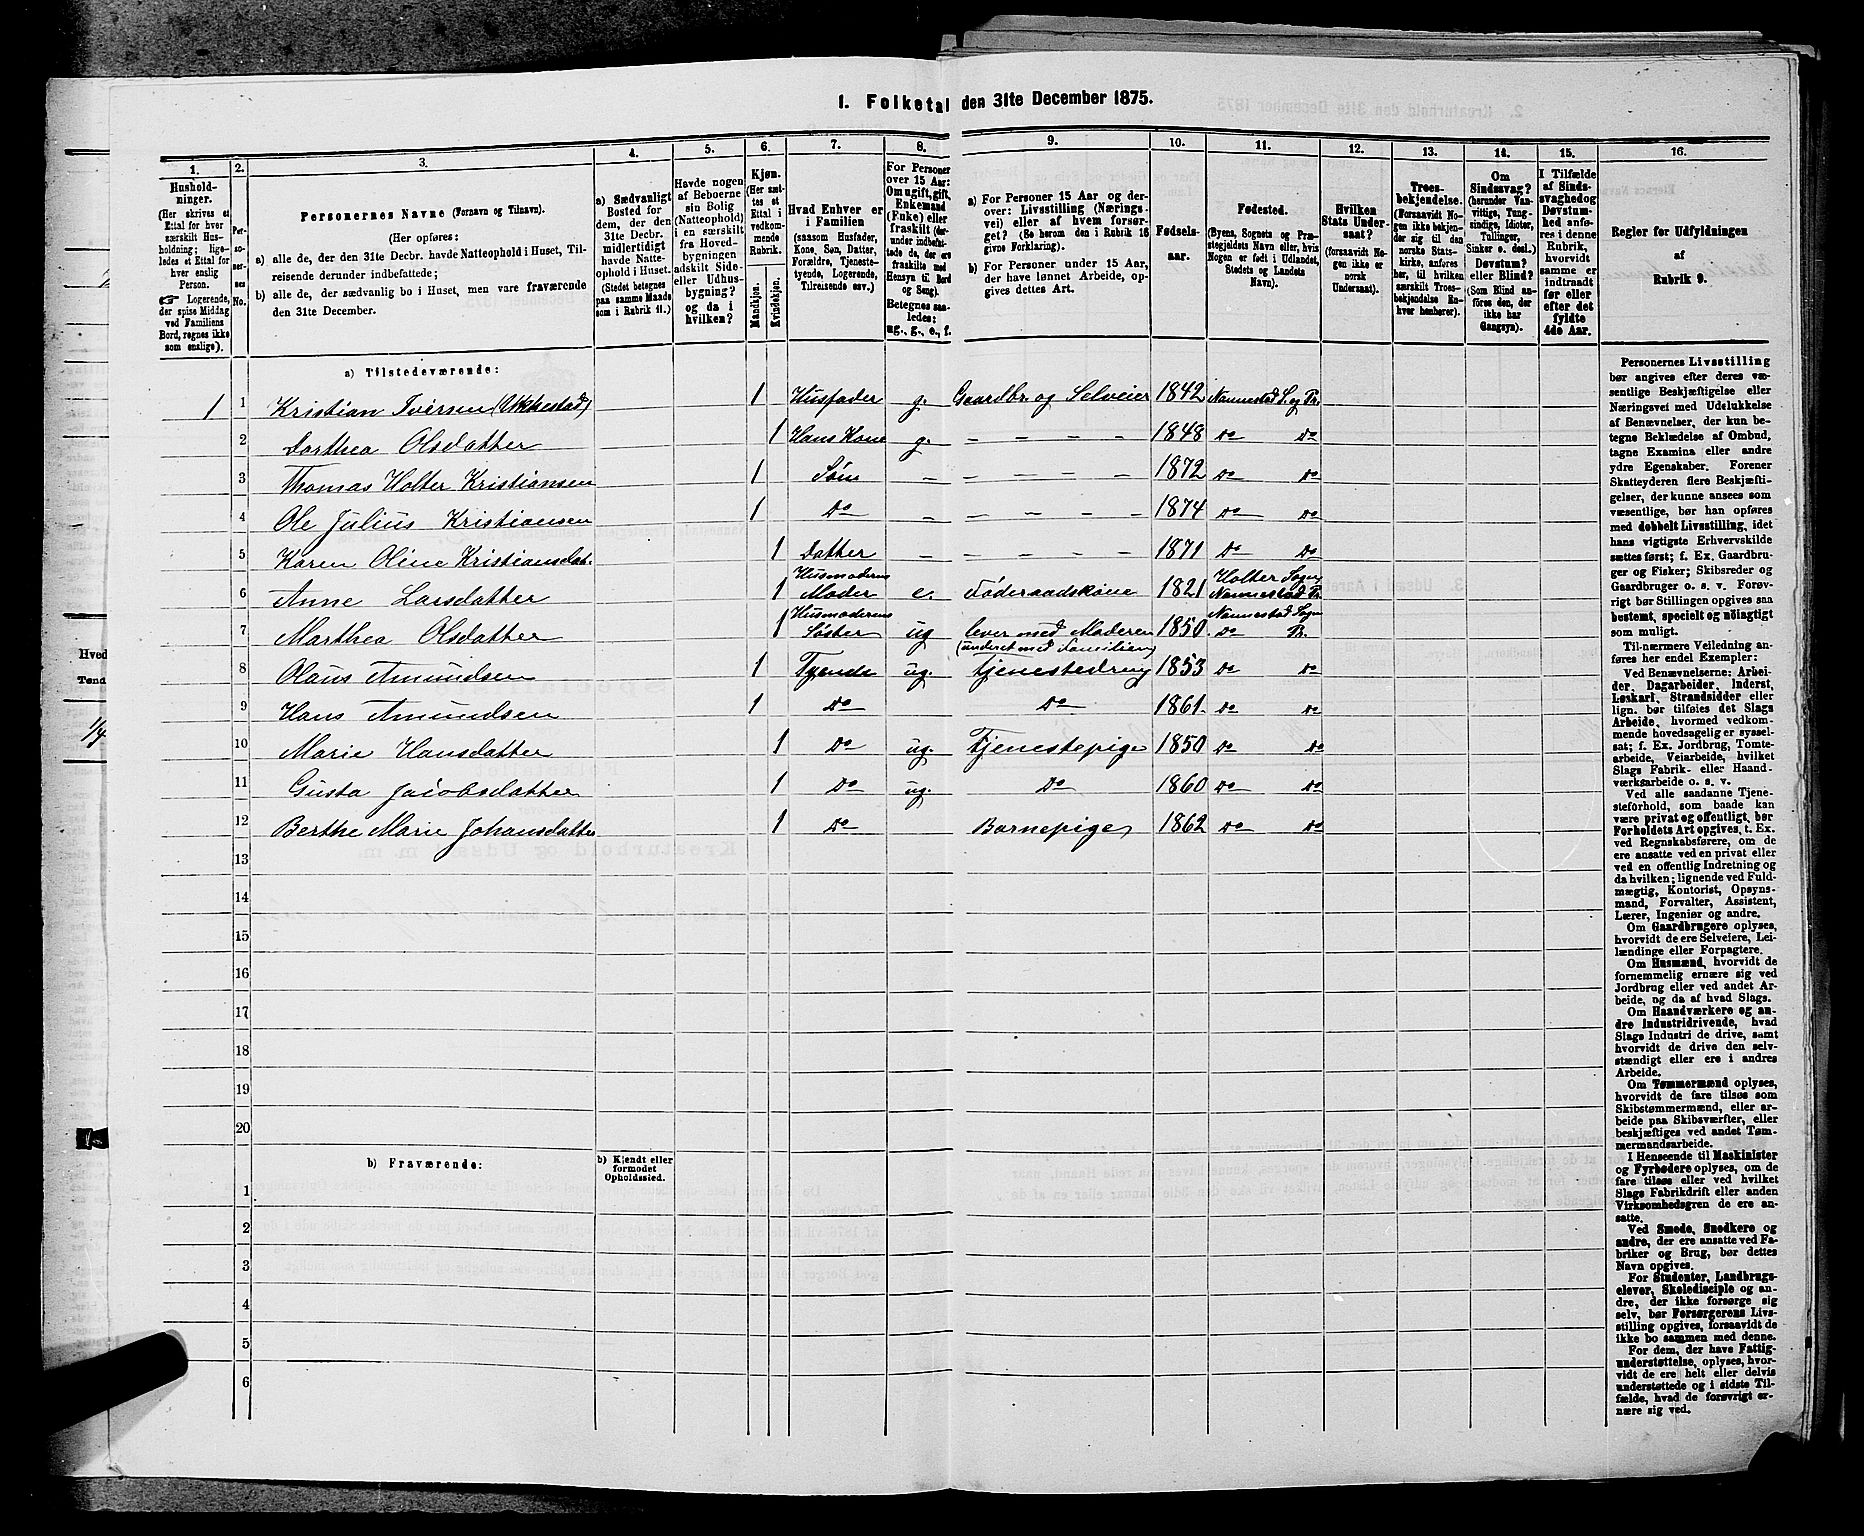 1. Folketal den 31te December 1875.
1.
Hushold-
ninger.
(Her skrives et
Ettal for hver
særskilt Hus-
holdning; lige-
ledes et Ettal for
hver enslig
Person.
☞ Logerende,
der spise Middag
ved Familiens
Bord, regnes ikke
som enslige).
2.
Per-
so-
ner-
nes
No.
3.
Personernes Navne (Fornavn og Tilnavn).
(Her opføres:
a) alle de, der den 31te Decbr. havde Natteophold i Huset, Til-
reisende derunder indbefattede;
b) alle de, der sædvanlig bo i Huset, men vare fraværende
den 31te December.
4.
a) Sædvanligt
Bosted for
dem, der den
31te Decbr.
midlertidigt
havde Natte-
ophold i Huset.
(Stedet betegnes
paa samme Maade
som i Rubrik 11.)
5.
Havde nogen
af Beboerne
sin Bolig
(Natteophold)
i en særskilt
fra Hoved-
bygningen
adskilt Side-
eller Udhus-
bygning?
og da i
hvilken?
6.
Kjøn.
(Her sæt-
tes et
Ettal i
vedkom-
mende
Rubrik.
Mandkjøn.
Kvindekjøn.
7.
Hvad Enhver er
i Familien
(saasom Husfader,
Kone, Søn, Datter,
Forældre, Tjeneste-
tyende, Logerende,
Tilreisende osv.)
8.
For Personer
over 15 Aar:
Om ugift, gift,
Enkemand
(Enke) eller
fraskilt (der-
under indbefat-
tede de, der ere
fraskilte med
Hensyn til Bord
og Seng).
Betegnes saa-
ledes:
ug., g., e., f.
9.
a) For Personer 15 Aar og der-
over: Livsstilling (Nærings-
vei) eller af hvem forsør-
get? (Se herom den i Rubrik 16
givne Forklaring).
b) For Personer under 15 Aar,
der have lønnet Arbeide, op-
gives dettes Art.
10.
Fødsels-
aar.
11.
Fødested.
(Byens, Sognets og Præ-
stegjeldets Navn eller, hvis
Nogen er født i Udlandet,
Stedets og Landets
Navn).
12.
Hvilken
Stats Under-
saat?
(forsaavidt No-
gen ikke er
norsk
Undersaat).
13.
Troes-
bekjendelse.
(Forsaavidt No-
gen ikke bekjen-
der sig til den
norske Stats-
kirke, anføres
her, til hvilken
særskilt Troes-
bekjendelse En-
hver henhører).
14.
Om
Sindssvag?
(herunder Van-
vittige, Tung-
sindige, Idioter,
Tullinger,
Sinker o. desl.)
Døvstum?
eller Blind?
(Som Blind an-
føres den, der
ikke har
Gangsyn).
15.
I Tilfælde
af Sinds-
svaghed og
Døvstum-
hed anfø-
res i denne
Rubrik,
hvorvidt
samme er
indtraadt
før eller
efter det
fyldte
4de Aar.
16.
Regler for Udfyldningen
af
Rubrik 9.
a) Tilstedeværende:
1 1 Kristian Iversen (Ukkestad) 1 Husfader g. Gaardbr. og Selveier 1842 Nannestad S. og Pr.
2 Dorthea Olsdatter 1 Hans Kone g. – – – – 1848 Do Do
3 Thomas Holter Kristiansen 1 Søn – – – – – 1872 Do Do
4 Ole Julius Kristiansen 1 Do – – – – – 1874 Do Do
5 Karen Oline Kristiansdat. 1 Datter – – – – – 1871 Do Do
6 Anne Larsdatter 1 Husmoderens Moder e. Føderaadskone 1821 Holter Sogn Nannestad Pr.
7 Marthea Olsdatter 1 Husmoderens Søster ug lever med Moderen (underet med Familien) 1850 Nannestad Sogn Do Pr.
8 Olaus Amundsen 1 Tyende ug. Tjenestedreng 1853 Do Do
9 Hans Amundsen 1 Do Do 1861 Do Do
10 Marie Hansdatter 1 Do ug. Tjenestepige 1850 Do Do
11 Gusta Jacobsdatter 1 Do ug. Do 1860 Do Do
12 Berthe Marie Johansdatter 1 Do Barnepige 1862 Do Do
13
14
15
16
17
18
19
20
b) Fraværende:
b) Kjendt eller
formodet
Opholdssted.
1
2
3
4
5
6
Personernes Livsstilling
bør angives efter deres væ-
sentlige Beskjæftigelse eller
Næringsvei med Udelukkelse
af Benævnelser, der kun be-
tegne Beklædelse af Ombud,
tagne Examina eller andre
ydre Egenskaber. Forener
Skatteyderen flere Beskjæfti-
gelser, der kunne ansees som
væsentlige, bør han opføres
med dobbelt Livsstilling, idet
hans vigtigste Erhvervskilde
sættes først; f. Ex. Gaardbru-
ger og Fisker; Skibsreder og
Gaardbruger o. s. v. Forøv-
rigt bør Stillingen opgives saa
bestemt, specielt og nöiagtigt
som muligt.
Til nærmere Veiledning an-
føres her endel Exempler:
Ved Benævnelserne: Arbei-
der, Dagarbeider, Inderst,
Løskarl, Strandsidder eller
lign. bør tilføies det Slags
Arbeide, hvormed vedkom-
mende hovedsagelig er syssel-
sat; f. Ex. Jordbrug, Tomte-
arbeide, Veiarbeide, hvilket
Slags Fabrik- eller Haand-
værksarbeide o. s. v.
Ved alle saadanne Tjene-
steforhold, som baade kan
være privat og offentligt, bør
Forholdets Art opgives, t. Ex.
ved Regnskabsførere, om de
ere ansatte ved en privat eller
ved en offentlig Indretning og
da hvilken; lignende ved Fuld-
mægtig, Kontorist, Opsyns-
mand, Forvalter, Assistent,
Lærer, Ingeniør og andre.
Om Gaardbrugere oplyses,
hvorvidt de ere Selveiere, Lei-
lændinge eller Forpagtere.
Om Husmænd, hvorvidt de
fornemmelig ernære sig ved
Jordbrug eller ved andet Ar-
beide, og da af hvad Slags.
Om Haandværkere og an-
dre Industridrivende, hvad
Slags Industri de drive, samt
hvorvidt de drive den selv-
stændigt eller ere i andres
Arbeide.
Om Tømmermænd oplyses,
hvorvidt de fare tilsøs som
Skibstømmermænd, eller ar-
beide paa Skibsværfter, eller
beskjæftiges ved andet Tøm-
mermandsarbeide.
I Henseende til Maskinister
og Fyrbødere oplyses, om de
fare tilsøs eller ved hvilket
Slags Fabrikdrift eller anden
Virksomhedsgren de ere an-
satte.
Ved Smede, Snedkere og
andre, der ere ansatte ved Fa-
briker og Brug, bør dettes
Navn opgives.
For Studenter, Landbrugs-
elever, Skoledisciple og an-
dre, der ikke forsørge sig
selv, bør Forsørgerens Livs-
stilling opgives, forsaavidt de
ikke bo sammen med denne.
For dem, der have Fattig-
understøttelse, oplyses, hvor-
vidt de ere helt eller delvis
understøttede og i sidste Til-
fælde, hvad de forøvrigt er-
nære sig ved.
Hved
Tønd
1/4